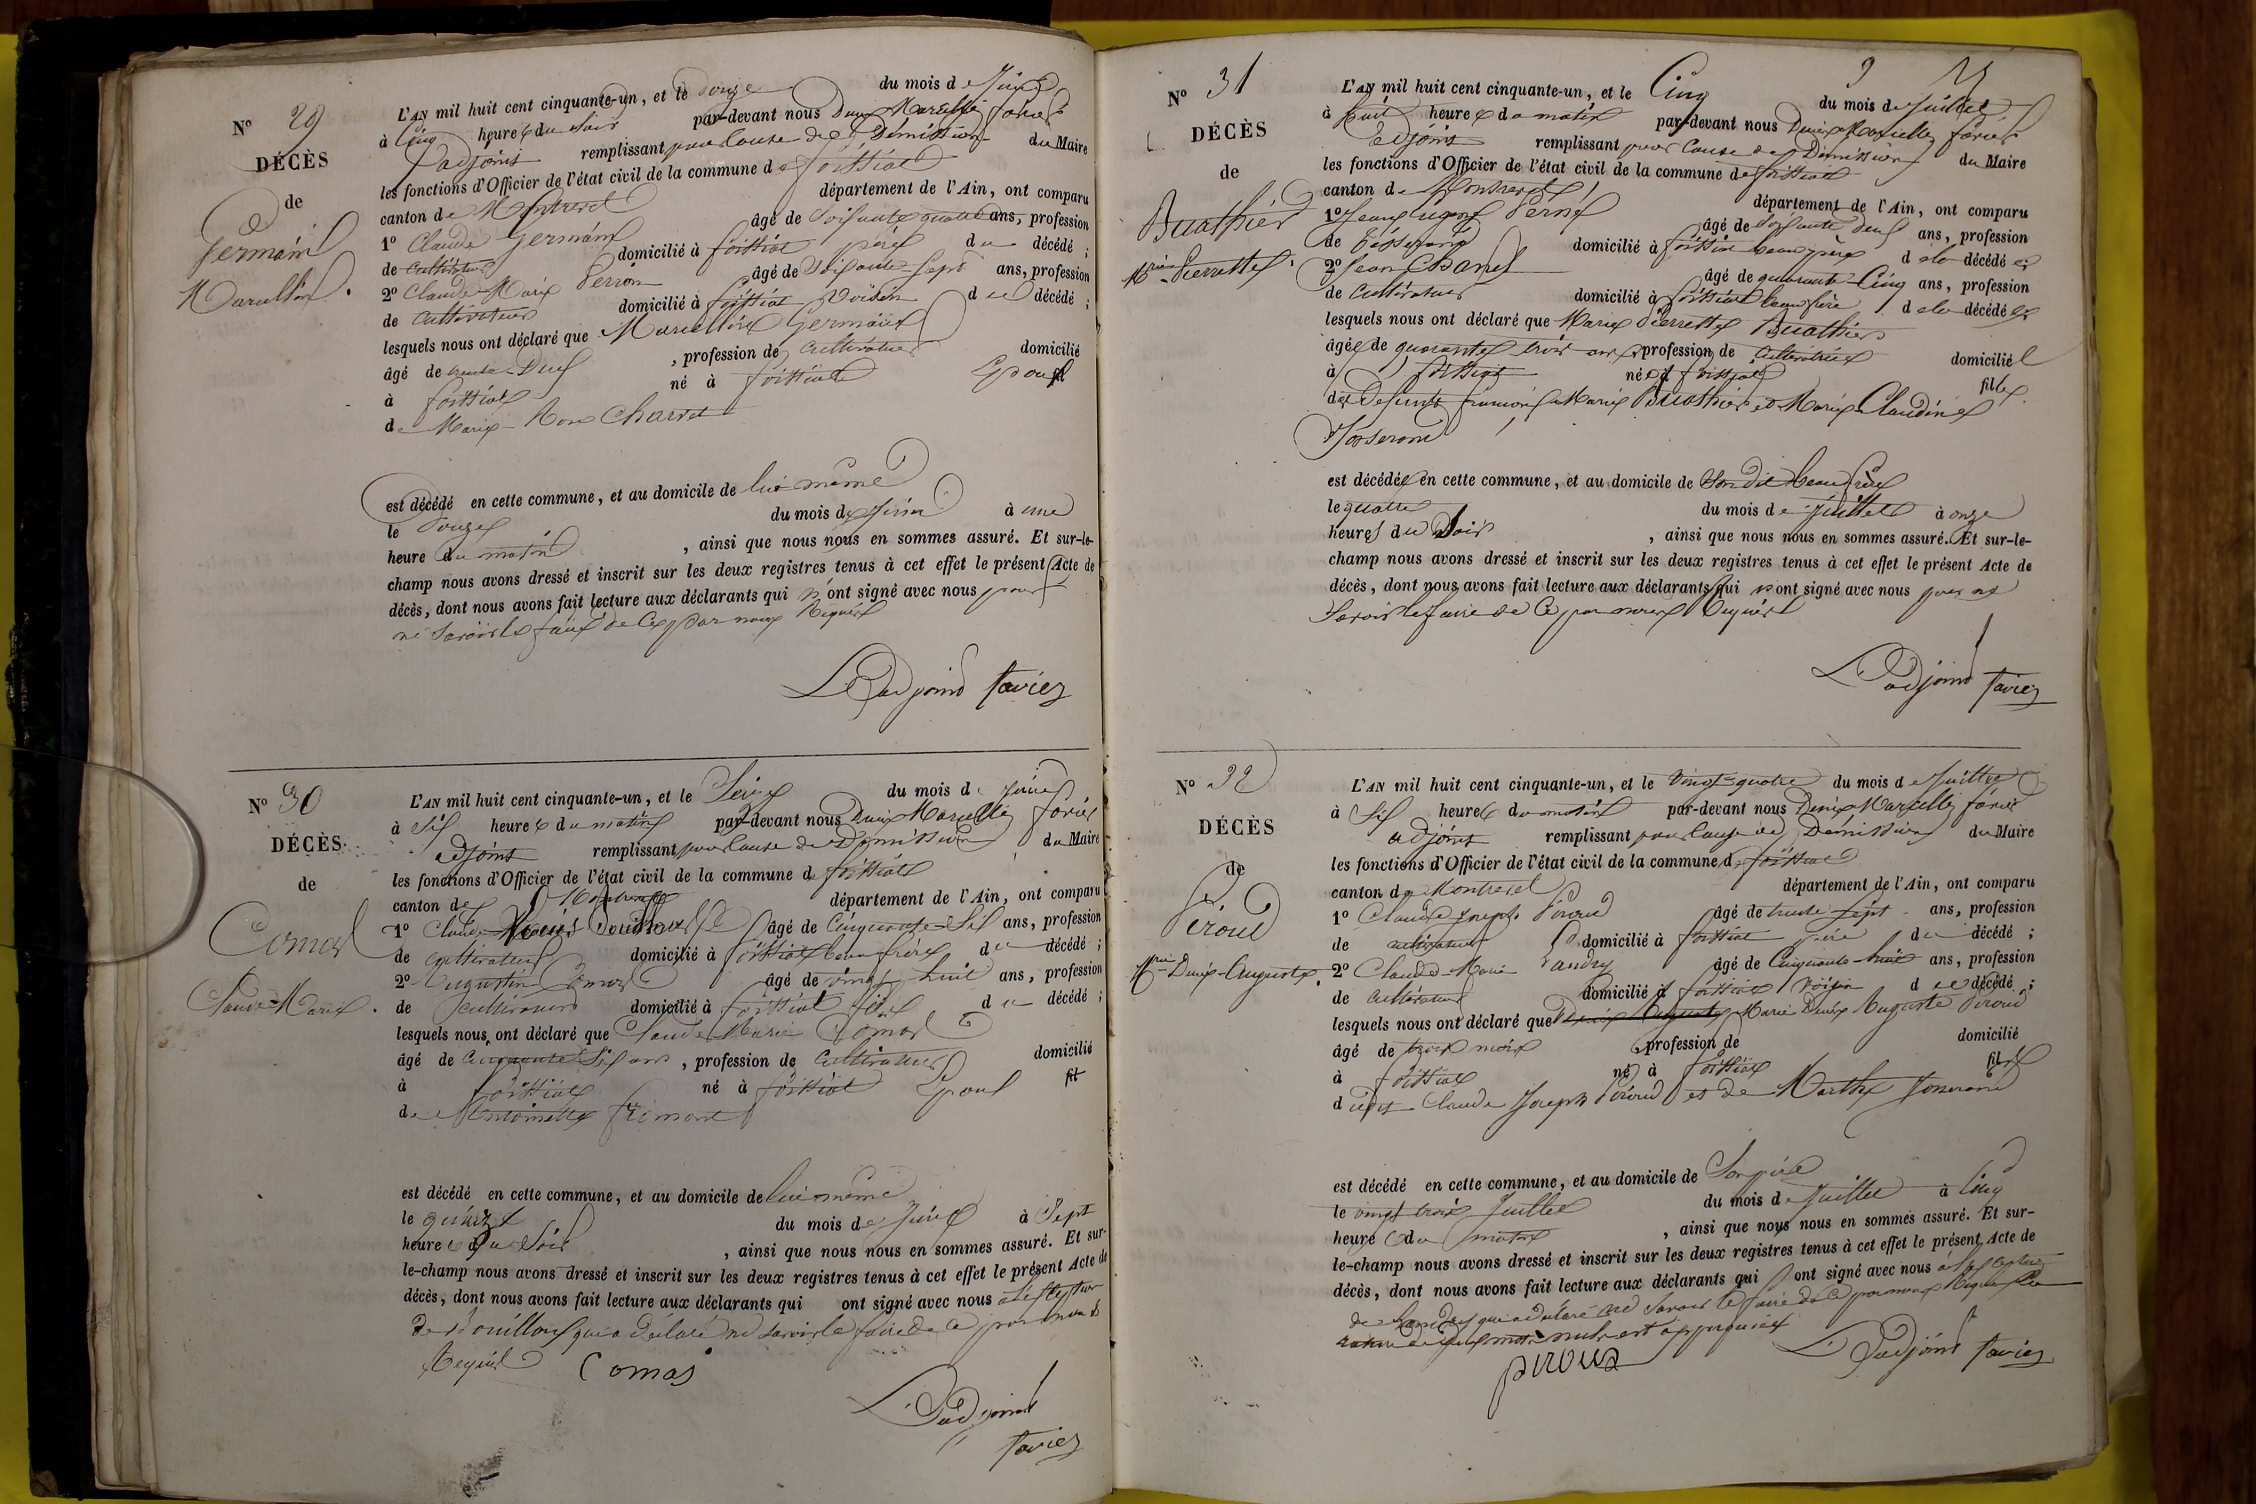 N° 29
DÉCÈS
de
Germain
Marcellin.
L'AN mil huit cent cinquante-un, et le Douze du mois de Juin
à Cinq heures du Soir par-devant nous Denis Marcellin favier
adjoint remplissant pour Cause de Démission du Maire
les fonctions d'Officier de l'état civil de la commune de foissiat
canton de Montrevel département de l'Ain, ont comparu
1° Claude Germain âgé de Soisante quatre ans, profession
de Cultivateur domicilié à foissiat père du décédé ;
2° Claude Marie Perron âgé de Soisante Sept ans, profession
de Cultivateur domicilié à foissiat Voisin du décédé ;
lesquels nous ont déclaré que Marcellin Germain
âgé de trente Deux , profession de Cultivateur domicilié
à foissiat né à foissiat Epoux
de Marie Rose Charvet
est décédé en cette commune, et au domicile de lui même
le Douze du mois de Juin à une
heure du matin , ainsi que nous nous en sommes assuré. Et sur-le-
champ nous avons dressé et inscrit sur les deux registres tenus à cet effet le présent Acte de
décès, dont nous avons fait lecture aux déclarants qui n'ont signé avec nous pour
ne Savoir le faire de Ce par nous Requis
L'adjoint favier
N° 30
DÉCÈS
de
Comas
Claude Marie.
L'AN mil huit cent cinquante-un, et le Seize du mois de Juin
à Six heures du matin par-devant nous Denis Marcellin favier
adjoint remplissant pour Cause de Démission du Maire
les fonctions d'Officier de l'état civil de la commune de foissiat
canton de Montrevel département de l'Ain, ont comparu
1° Claude Bouilloux âgé de Cinquante Six ans, profession
de Cultivateur domicilié à foissiat beau frère du décédé ;
2° Augustin Comas âgé de vingt huit ans, profession
de Cultivateur domicilié à foissiat fils du décédé ;
lesquels nous ont déclaré que Claude Marie Comas
âgé de Cinquante Six ans , profession de Cultivateur domicilié
à foissiat né à foissiat Epoux fil
de Antoinette frémont
est décédé en cette commune, et au domicile de lui même
le quinze du mois de Juin à Sept
heures du Soir , ainsi que nous nous en sommes assuré. Et sur-
le-champ nous avons dressé et inscrit sur les deux registres tenus à cet effet le présent Acte de
décès, dont nous avons fait lecture aux déclarants qui ont signé avec nous à l'exception
de Bouilloux qui a déclaré ne savoir le faire de Ce par nous
Requis Comas
L'adjoint
favier
N° 31
DÉCÈS
de
Buathier
Mrie Pierrette.
L'AN mil huit cent cinquante-un, et le Cinq du mois de Juillet
à huit heures du matin par-devant nous Denis Marcellin favier
adjoint remplissant pour Cause de Démission du Maire
les fonctions d'Officier de l'état civil de la commune de foissiat
canton de Montrevel département de l'Ain, ont comparu
1° Perret âgé de Soisante deux ans, profession
de Tisserand domicilié à foissiat beau père de la décédée
2° Jean Chanel âgé de quarante Cinq ans, profession
de Cultivateur domicilié à foissiat beau frère de la décédée
lesquels nous ont déclaré que Marie Pierrette Buathier
âgée de quarante trois ans profession de Cultivatrice domicilié
à foissiat née à foissiat fille
des Defunts françois Marie Buathier et Marie Claudine
Josserand
est décédée en cette commune, et au domicile de Son dit beau frère
le quatre du mois de Juillet à onze
heures du Soir , ainsi que nous nous en sommes assuré. Et sur-le-
champ nous avons dressé et inscrit sur les deux registres tenus à cet effet le présent Acte de
décès, dont nous avons fait lecture aux déclarants qui n'ont signé avec nous pour ne
Savoir le faire de Ce par nous Requis
L'adjoint favier
N° 32
DÉCÈS
de
Péroud
Mrie Denis Auguste.
L'AN mil huit cent cinquante-un, et le vingt quatre du mois de Juillet
à Six heures du matin par-devant nous Denis Marcellin favier
adjoint remplissant pour Cause de Démission du Maire
les fonctions d'Officier de l'état civil de la commune de foissiat
canton de Montrevel département de l'Ain, ont comparu
1° Claude Joseph Péroud âgé de trente Sept ans, profession
de Cultivateur domicilié à foissiat père du décédé ;
2° Claude Marie Pandry âgé de Cinquante huit ans, profession
de Cultivateur domicilié à foissiat Voisin du décédé ;
lesquels nous ont déclaré que Denis Auguste Marie Denis Auguste Péroud
âgé de trois mois profession de domicilié
à foissiat né à foissiat fils
dudit Claude Joseph Péroud et de Marthe Josserand
est décédé en cette commune, et au domicile de Son père
le vingt trois Juillet du mois de Juillet à Cinq
heures du matin , ainsi que nous nous en sommes assuré. Et sur-
le-champ nous avons dressé et inscrit sur les deux registres tenus à cet effet le présent Acte de
décès, dont nous avons fait lecture aux déclarants qui ont signé avec nous à l'exception
de Pandry qui a déclaré ne Savoir le faire de Ce par nous Requis
rature de deux mots nuls est approuvée
peroud L'adjoint favier